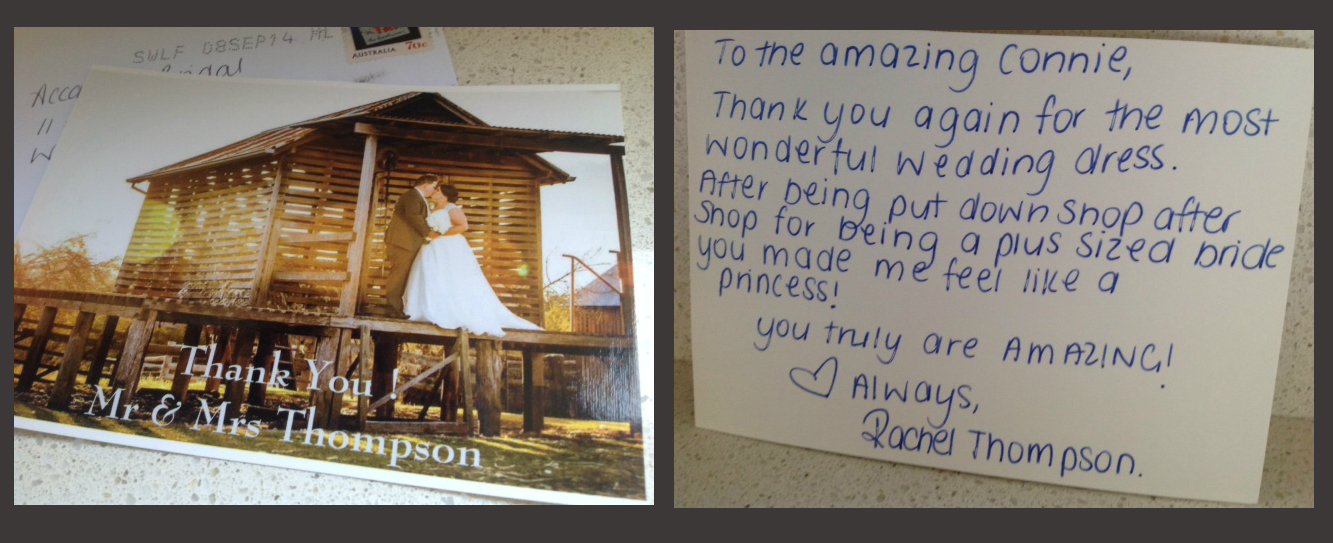 SWLF 08SEP14 AL
AUSTRALIA 70c
Bridal
Acca
11
W
Thank You !
Mr & Mrs Thompson
To the amazing Connie,
Thank you again for the most
wonderful wedding dress.
After being put down shop after
shop for being a plus sized bride
you made me feel like a
princess!
you truly are AMAZING!
Always,
Rachel Thompson.